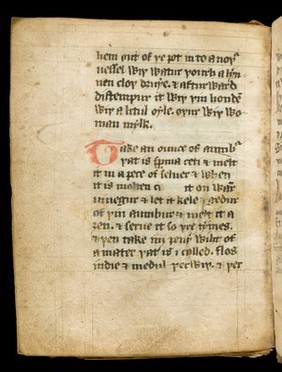 hem out of ye pot in to a noyr
vessel wyt watur yorub a lyn
nen cloy druye. & afturward
distempur it wyt yin honde
wyt a litul oyle. oyur wyt wo
man mylk.
Take an ounce of aumb
yat is spma ceti & melt
it in a pece of seluer & when
it is molten it on war
uinegur & let it kele gedur
of yin aumbur & melt it a
zen. & serue it so yre tymes.
& yen take iiii peny wiht of
a mater yat is i called. flos
indie & medul yerwyt. & yet